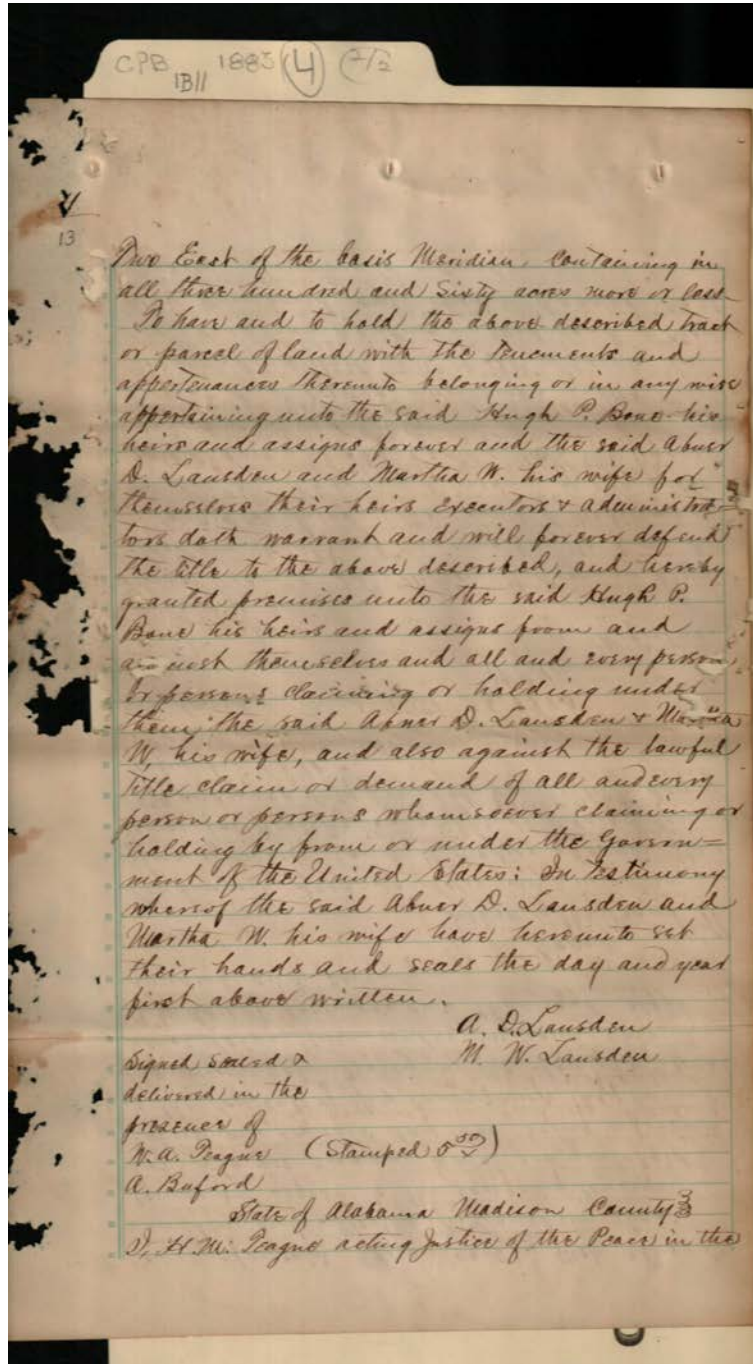 CPB 1883 (4) (2/2
1B11
4
13
Two East of the basis Meridian, Containing in
all three hundred and Sixty acres more or less
To have and to hold the above described tract
or parcel of land with the tenements and
appertenances thereunto belonging or in any wise
appertaining unto the said Hugh P. Bone his
heirs and assigns forever and the said Abner
D. Lansden and Martha W. his wife for
themselves their heirs Executors & administra=
tors doth warrant and will forever defend
the title to the above described, and hereby
granted premises unto the said Hugh P.
Bone his heirs and assigns from and
against themselves and all and every person
or persons claiming or holding under
them, the said Abner D. Lansden & Martha
W, his wife, and also against the lawful
title claim or demand of all and every
person or persons whomsoever claiming or
holding by from or under the Govern=
ment of the United States: In Testimony
whereof the said Abner D. Lansden and
Martha W. his wife have hereunto set
their hands and seals the day and year
first above written.
A. D. Lansden
Signed sealed & M. W. Lansden
delivered in the
presence of
W. A. Teague (Stamped
A. Buford
State of Alabama Madison County
I, H. M. Teague acting Justice of the Peace in the